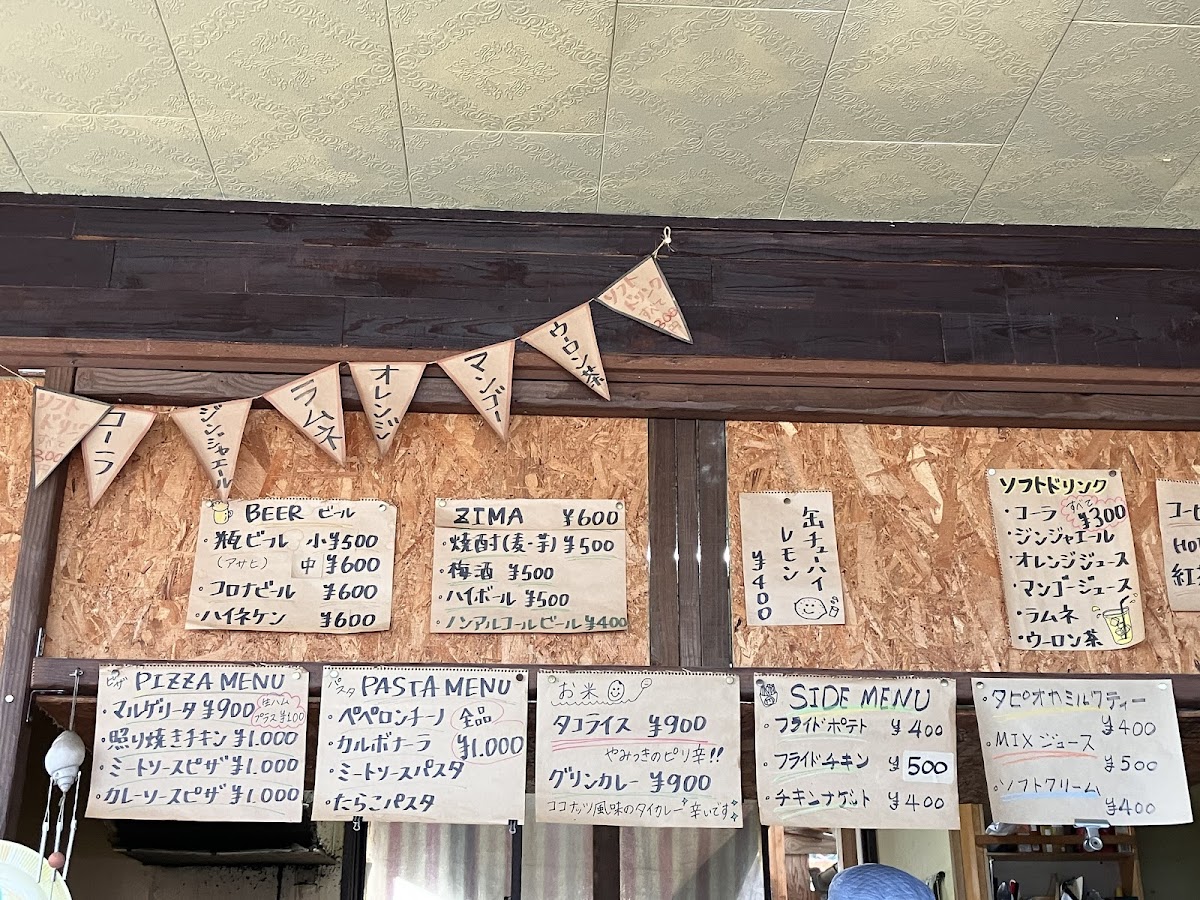 ソフト
ドリンク
すべて
300
コーラ
ジンジャエール
ラムネ
オレンジ
マンゴー
ウーロン茶
ソフト
ドリンク
すべて
300円
BEER ビール
・瓶ビール 小¥500
(アサヒ) 中¥600
・コロナビール ¥600
・ハイネケン ¥600
ZIMA ¥600
・焼酎(麦・芋)¥500
・梅酒 ¥500
・ハイボール ¥500
・ノンアルコールビール¥400
缶チューハイ
レモン
¥400
ソフトドリンク
すべて
¥300
・コーラ
・ジンジャエール
・オレンジジュース
・マンゴージュース
・ラムネ
・ウーロン茶
コーヒ
紅茶
ピザ PIZZA MENU
・マルゲリータ ¥900
生ハム
プラス¥100
・照り焼きチキン ¥1.000
・ミートソースピザ ¥1.000
・カレーソースピザ ¥1.000
パスタ PASTA MENU
・ペペロンチーノ
・カルボナーラ
・ミートソースパスタ
・たらこパスタ
全品
¥1.000
お米
タコライス ¥900
やみつきのピリ辛!!
グリンカレー ¥900
ココナッツ風味のタイカレー 辛いです
SIDE MENU
・フライドポテト ¥400
・フライドチキン ¥500
・チキンナゲット ¥400
・タピオカミルクティー
¥400
・MIXジュース
¥500
・ソフトクリーム
¥400